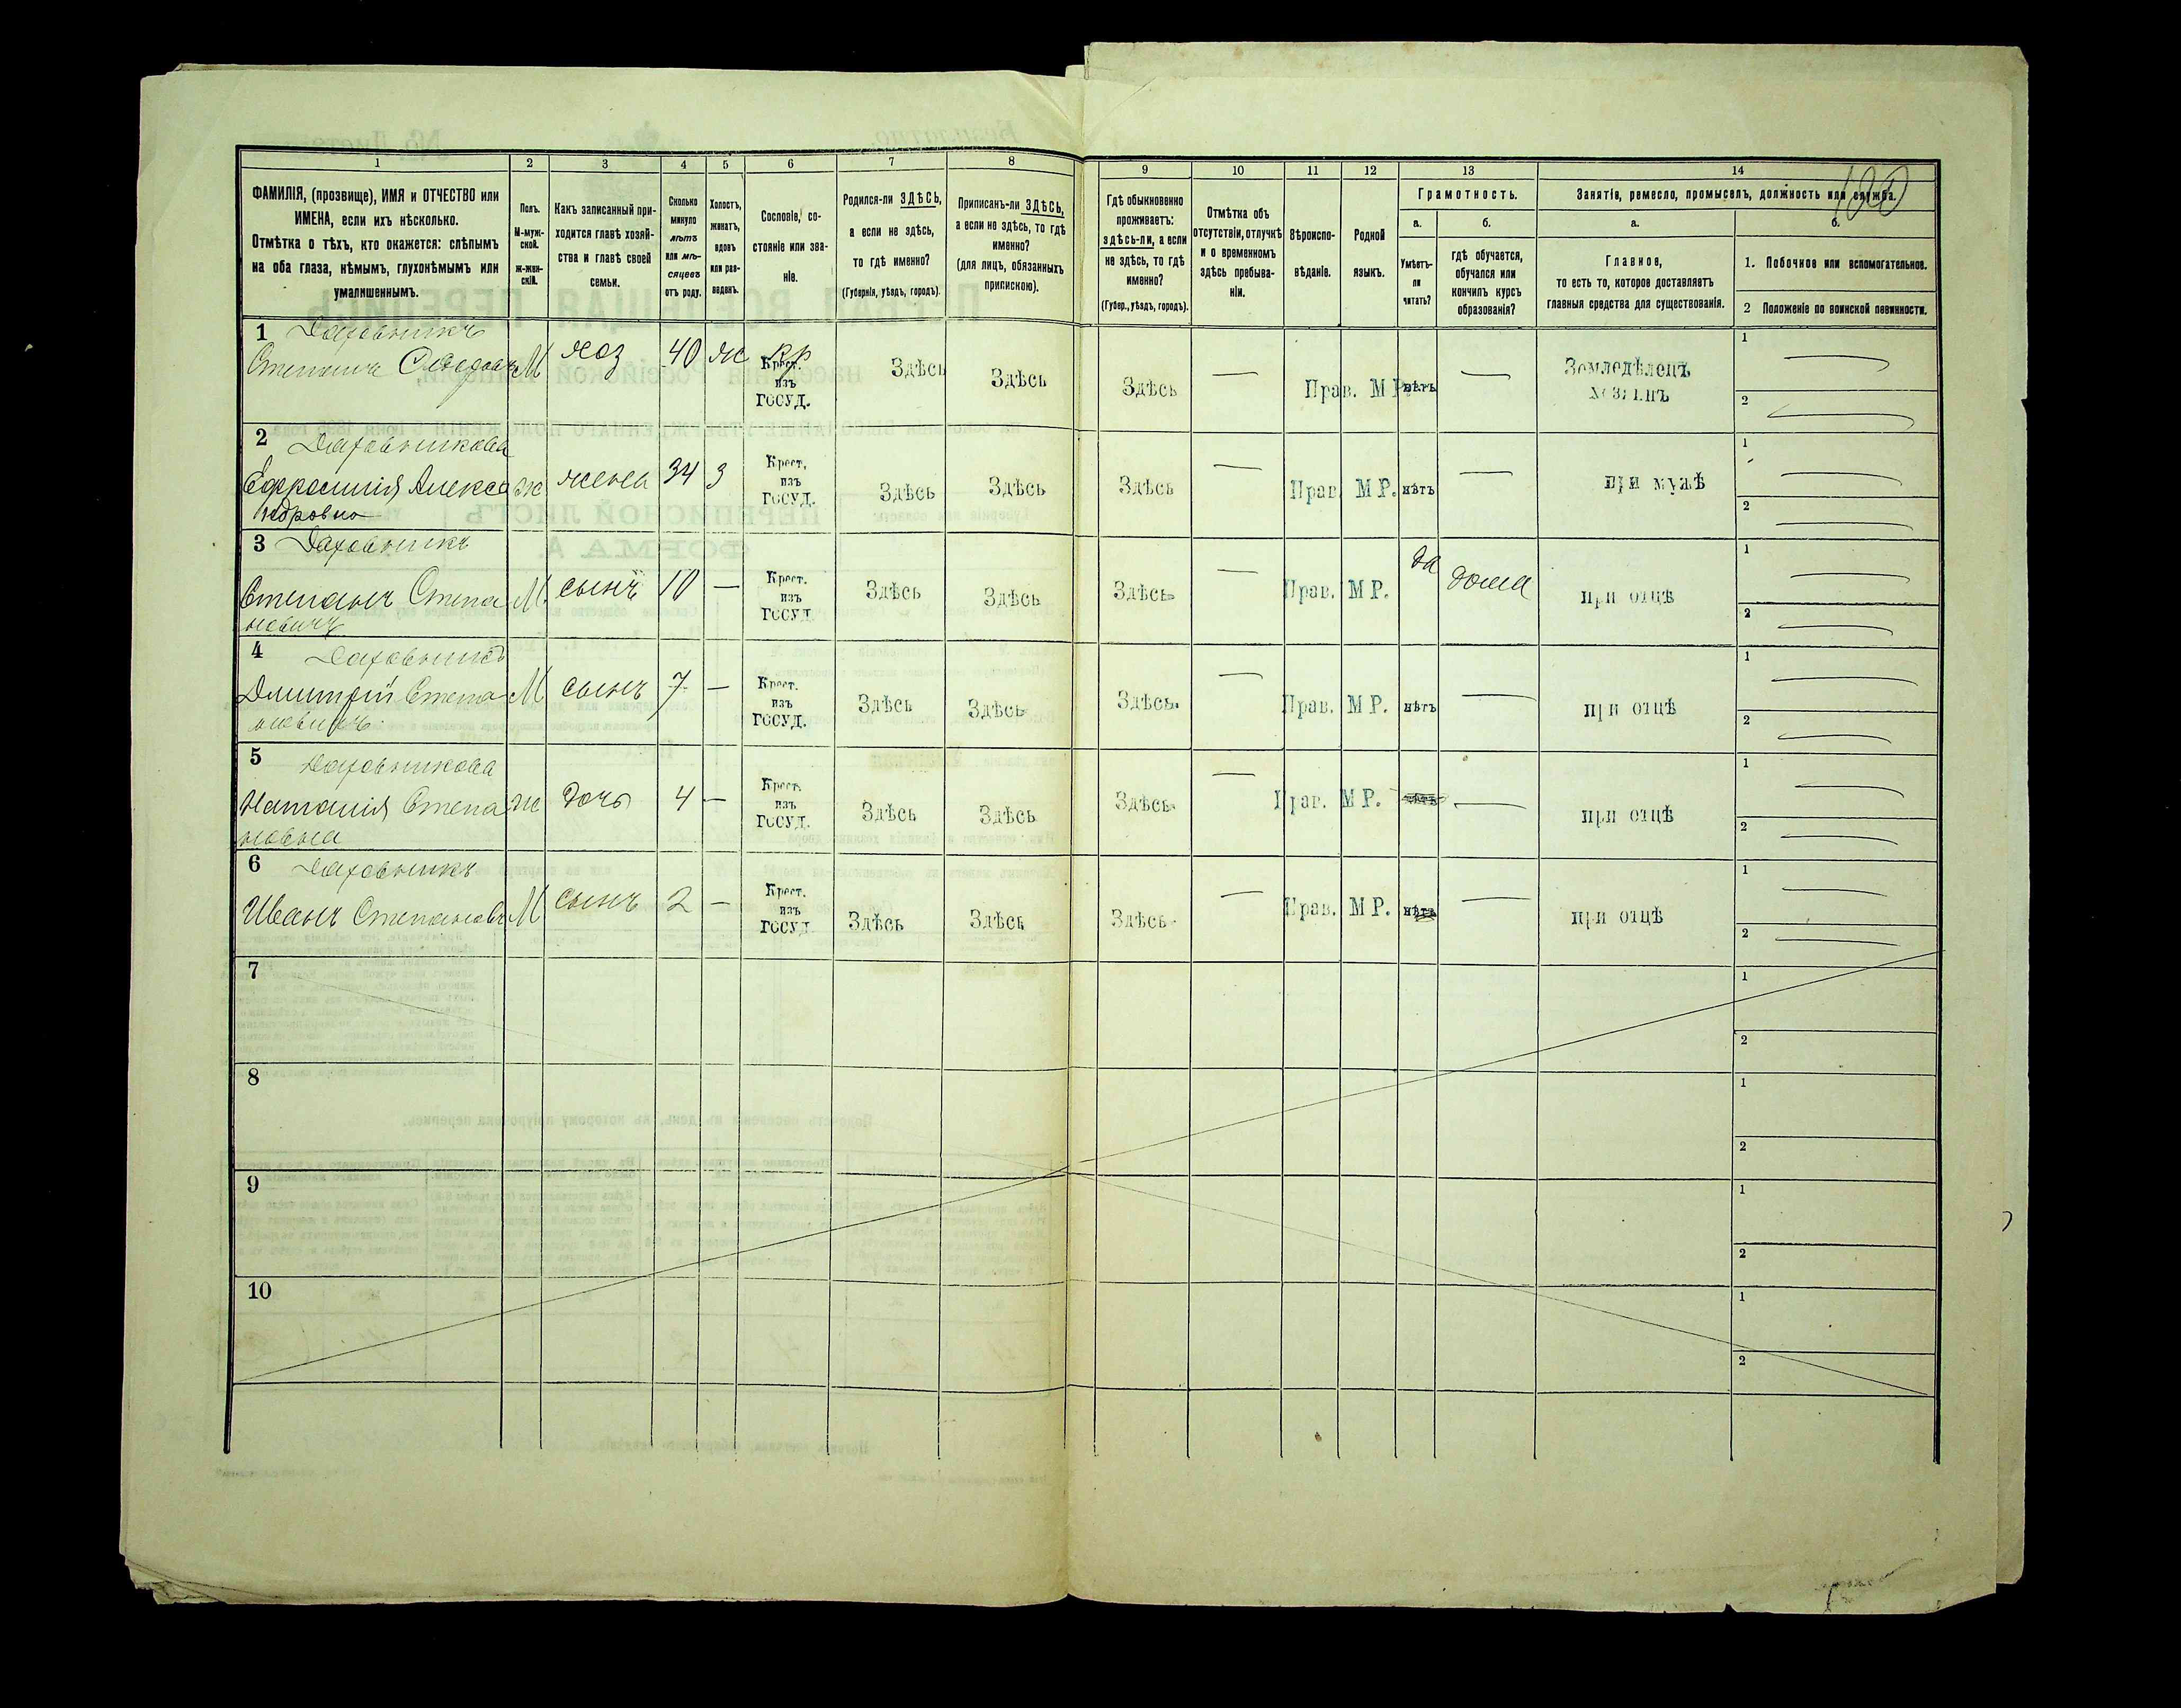 100
1 2 3 4 5 6 7 8 9 10 11 12 13 14
ФАМИЛІЯ, (прозвище), ИМЯ и ОТЧЕСТВО или
ИМЕНА, если ихъ нѣсколько.
Отмѣтка о тѣхъ, кто окажется: слѣпымъ
на оба глаза, нѣмымъ, глухонѣмымъ или
умалишеннымъ.
Полъ.
М-муж-
ской.
ж-жен-
скій.
Какъ записанный при-
ходится главѣ хозяй-
ства и главѣ своей
семьи.
Сколько
минуло
лѣтъ
или мѣ-
сяцевъ
отъ роду.
Холостъ,
женатъ,
вдовъ
или раз-
веденъ.
Сословіе, со-
стояніе или зва-
ніе.
Родился-ли ЗДѢСЬ,
а если не здѣсь,
то гдѣ именно?
(Губернія, уѣздъ, городъ).
Приписанъ-ли ЗДѢСЬ,
а если не здѣсь, то гдѣ
именно?
(для лицъ, обязанныхъ
припискою).
Гдѣ обыкновенно
проживаетъ:
здѣсь-ли, а если
не здѣсь, то гдѣ
именно?
(Губер., уѣздъ, городъ).
Отмѣтка объ
отсутствіи, отлучкѣ
и о временномъ
здѣсь пребыва-
ніи.
Вѣроиспо-
вѣданіе.
Родной
языкъ.
Грамотность.
а.
Умѣетъ-
ли
читать?
б.
гдѣ обучается,
обучался или
кончилъ курсъ
образованія?
Занятія, ремесло, промыселъ, должность или служба.
а.
Главное,
то есть то, которое доставляетъ
главныя средства для существованія.
б.
1. Побочное или вспомогательное.
2 Положеніе по воинской повинности.
1 М хоз 40 ж кр Крест. изъ ГОСУД. Здѣсь Здѣсь Здѣсь — Прав. М Р. нѣтъ — Земледѣлецъ хозяинъ 1 — 2 —
2
Ефросинія Алекса
ндровна ж жена 34 З Крест. изъ ГОСУД. Здѣсь Здѣсь Здѣсь — Прав. М Р. нѣтъ — при мужѣ 1 — 2 —
3
Степанъ Степа
новичъ М сынъ 10 — Крест. изъ ГОСУД. Здѣсь Здѣсь Здѣсь — Прав. М Р. да дома при отцѣ 1 — 2 —
4
Дмитрій Степа
новичъ М сынъ 7 — Крест. изъ ГОСУД. Здѣсь Здѣсь Здѣсь — Прав. М Р. нѣтъ — при отцѣ 1 — 2 —
5
Наталія Степа
новна ж дочь 4 — Крест. изъ ГОСУД. Здѣсь Здѣсь Здѣсь — Прав. М Р. нѣтъ — при отцѣ 1 — 2 —
6
Иванъ Степановъ М сынъ 2 — Крест. изъ ГОСУД Здѣсь Здѣсь Здѣсь — Прав. М Р. нѣтъ — при отцѣ 1 — 2 —
7 1 2
8 1 2
9 1 2
10 1 2